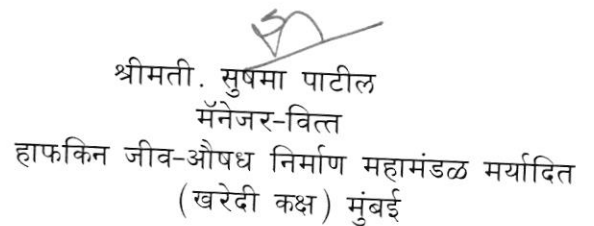 श्रीमती. सुषमा पाटील
मॅनेजर-वित्त
हाफकिन जीव-औषध निर्माण महामंडळ मर्यादित
(खरेदी कक्ष) मुंबई